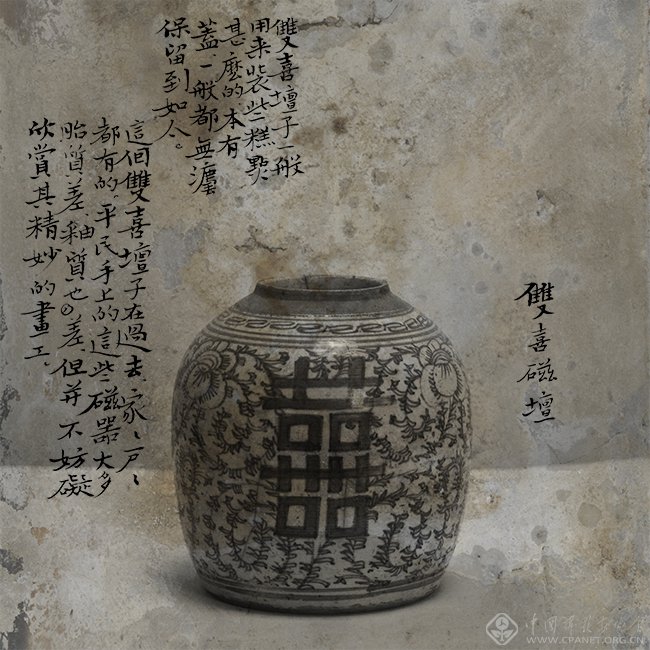 雙喜磁壇
雙喜壇子一般
用来装些糕點
甚麼的本有
蓋、一般都無灋
保留到如今。
這個雙喜壇子在過去、家、戶、
都有的。平民手上的這些磁器大多
胎質差、釉質也差但并不妨礙
欣賞其精妙的畫工。
囍
WWW.CPANET.ORG.CN